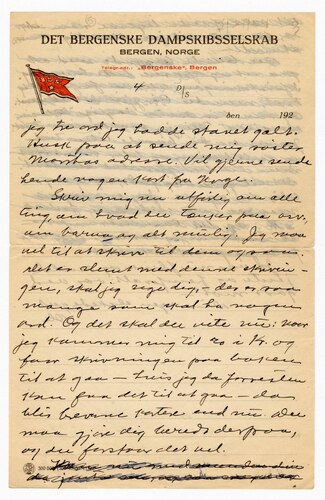 DET BERGENSKE DAMPSKIBSSELSKAB
BERGEN, NORGE
Telegr.-adr.: „Bergenske", Bergen
4 D/S
den 192
jeg tre ord jeg hadde stavet galt.
Husk paa at sende mig søster
adresse. Vil gjerne sende
hende nogen kort fra Norge.
Skriv mig nu alting om alle
ting, om hvad du tænker paa osv.
om barna og alt mulig. Jeg maa
vel til at skrive til dem ogsaa.
Det er slemt med denne skrivin-
gen, skal jeg sige dig, - der er saa
mange som skal ha nogen
ord. Og det skal du vite nu: naar
jeg kommer mig til ro i
faar skrivningen paa boken
til at gaa - hvis jeg da forresten
kan faa det til at gaa - da
blir brevene kortere end nu
maa gjøre dig
og du forstaar det vel.